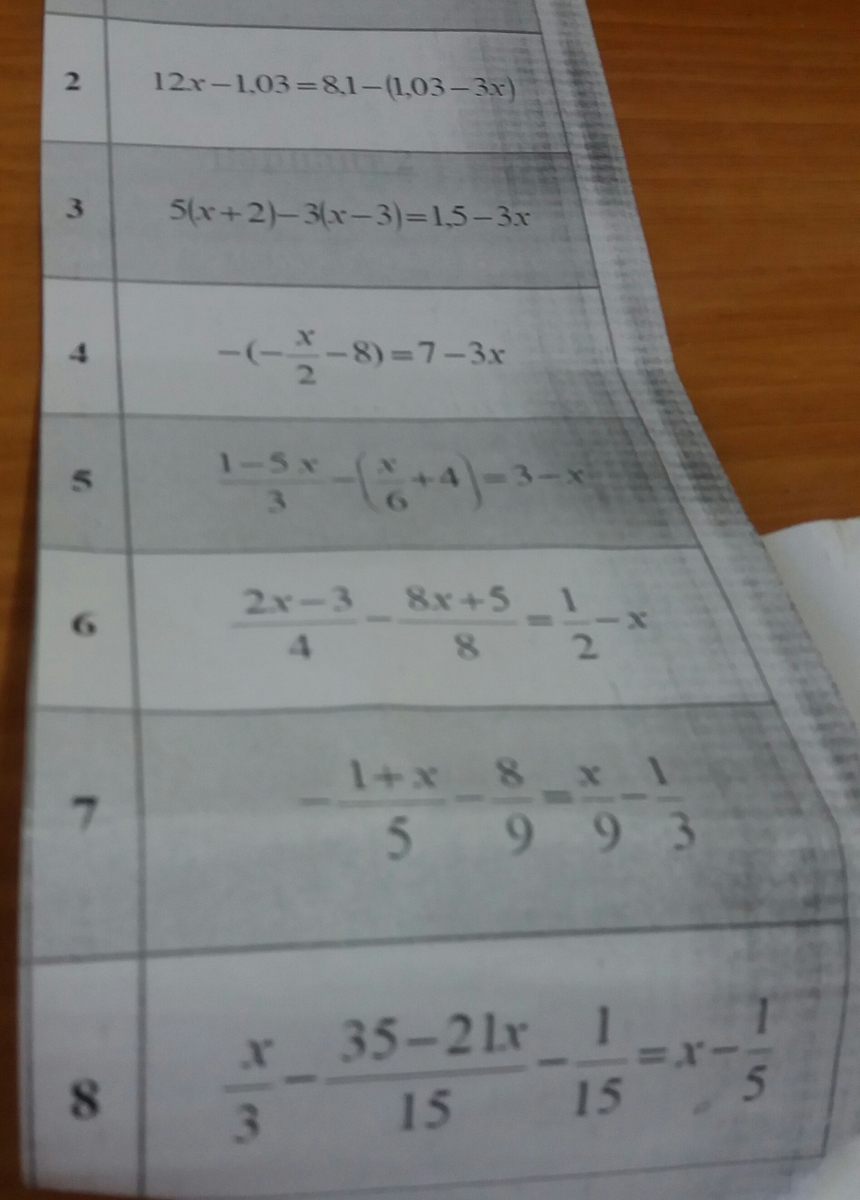 2 12x−1,03=8,1−(1,03−3x)
3 5(x+2)−3(x−3)=1,5−3x
4 −(−x/2−8)=7−3x
5 (1−5x)/3−(x/6+4)=3−x
6 (2x−3)/4−(8x+5)/8=1/2−x
7 −(1+x)/5−8/9=x/9−1/3
8 x/3−(35−21x)/15−1/15=x−1/5